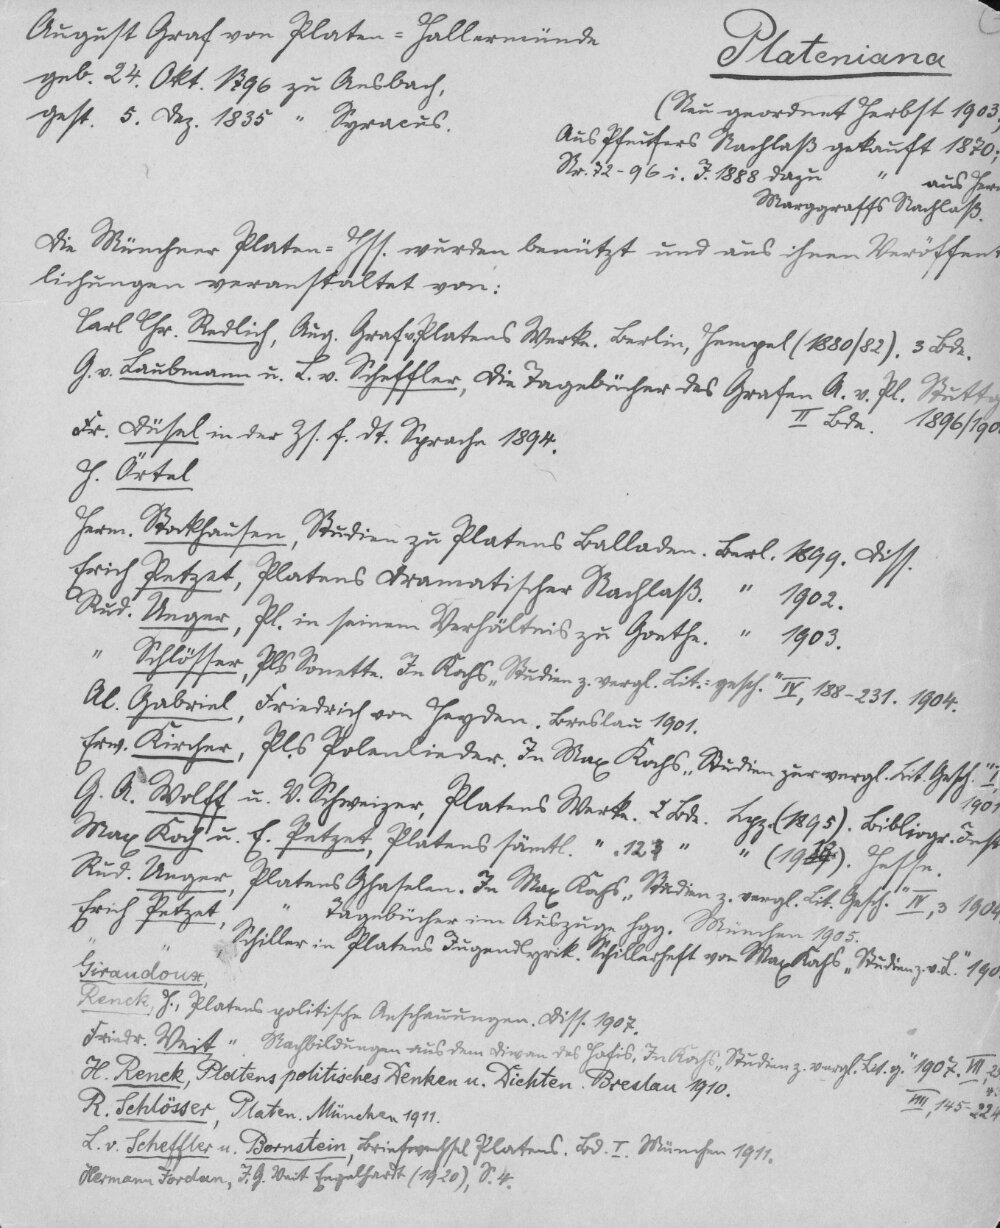 August Graf von Platen=Hallermünde
geb. 24. Okt. 1796 zu Ansbach,
gest. 5. Dez. 1835 " Syracus.
Plateniana
(Neu geordnet Herbst 1903,
Aus Pfeufers Nachlaß gekauft 1870;
Nr. 72-96 i. J. 1888 dazu " aus Herm
Marggraffs Nachlaß.
Die Münchner Platen=Hss. wurden benützt und aus ihnen Veröffent
lichungen veranstaltet von:
Carl Chr. Redlich, Aug. Graf v. Platens Werke. Berlin, Hempel (1880/82). 3 Bde.
G. v. Laubmann u. L. v. Scheffler, Die Tagebücher des Grafen A. v. Pl. Stuttg
II Bde. 1896/190
Fr. Düsel in der Zs. f. dt. Sprache 1894.
H. Örtel
Herm. Stockhausen, Studien zu Platens Balladen. Berl. 1899. Diss.
Erich Petzet, Platens dramatischer Nachlaß. " 1902.
Rud. Unger, Pl. in seinem Verhältnis zu Goethe. " 1903.
" Schlösser, Pls Sonette. In Kochs „Studien z. vergl. Lit.=gesch." IV, 188-231. 1904.
Al. Gabriel, Friedrich von Heyden. Breslau 1901.
Erw. Kircher, Pls. Polenlieder. In Max Kochs „Studien zur vergl. Lit. Gesch." I,
1901
G. A. Wolff u. V. Schweizer, Platens Werke. 2 Bde. Lpz. (1895). Bibliogr. Inst
Max Koch u. E. Petzet, Platens sämtl. " . 12 " " (19 ). Hesse.
Rud. Unger, Platens Ghaselen. In Max Kochs „Studien z. vergl. Lit. Gesch." IV, 3 1904
Erich Petzet, " Tagebücher im Auszuge hgg. München 1905.
" " , Schiller in Platens Jugendlyrik. Schillerheft von Max Kochs „Studien z. v. L." 190
Giraudoux,
Renck, H., Platens politische Anschauungen. Diss. 1907.
Friedr. Veit " Nachbildungen aus dem Diwan des Hafis. In Kochs „Studien z. vergl. Lit. g." 1907. VII, 2
H. Renck, Platens politisches Denken u. Dichten. Breslau 1910.
VIII, 145-224
R. Schlösser, Platen. München 1911.
L. v. Scheffler u. Bornstein, Briefwechsel Platens. Bd. I. München 1911.
Hermann Jordan, J. G. Veit Engelhardt (1920), S. 4.